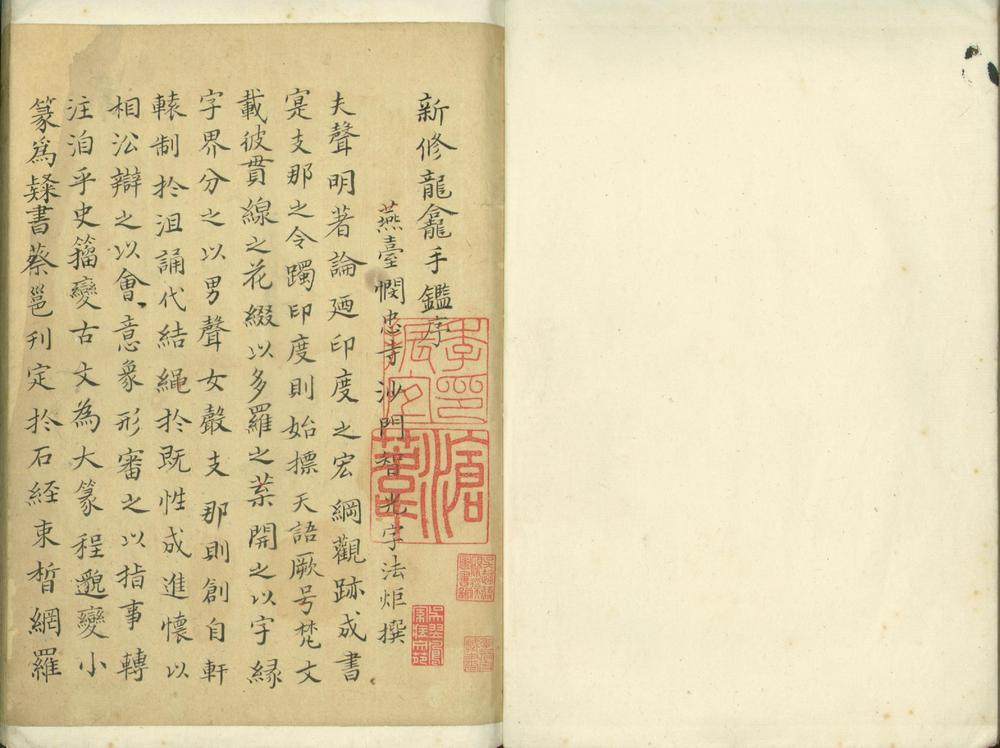 新修龍龕手鑑序
燕臺憫忠寺沙門智光字法炬撰
夫聲明著論廼印度之宏綱觀跡成書
寔支那之令躅印度則始摽天語厥号梵文
載彼貫線之花綴以多羅之葉開之以字縁
字界分之以男聲女聲支那則創自軒
轅制扵沮誦代結繩扵既性成進懷以
相沿辯之以會意象形審之以指事轉
注洎乎史籀變古文為大篆程邈變小
篆為隸書蔡邕刊定扵石経束晳網羅
滄葦